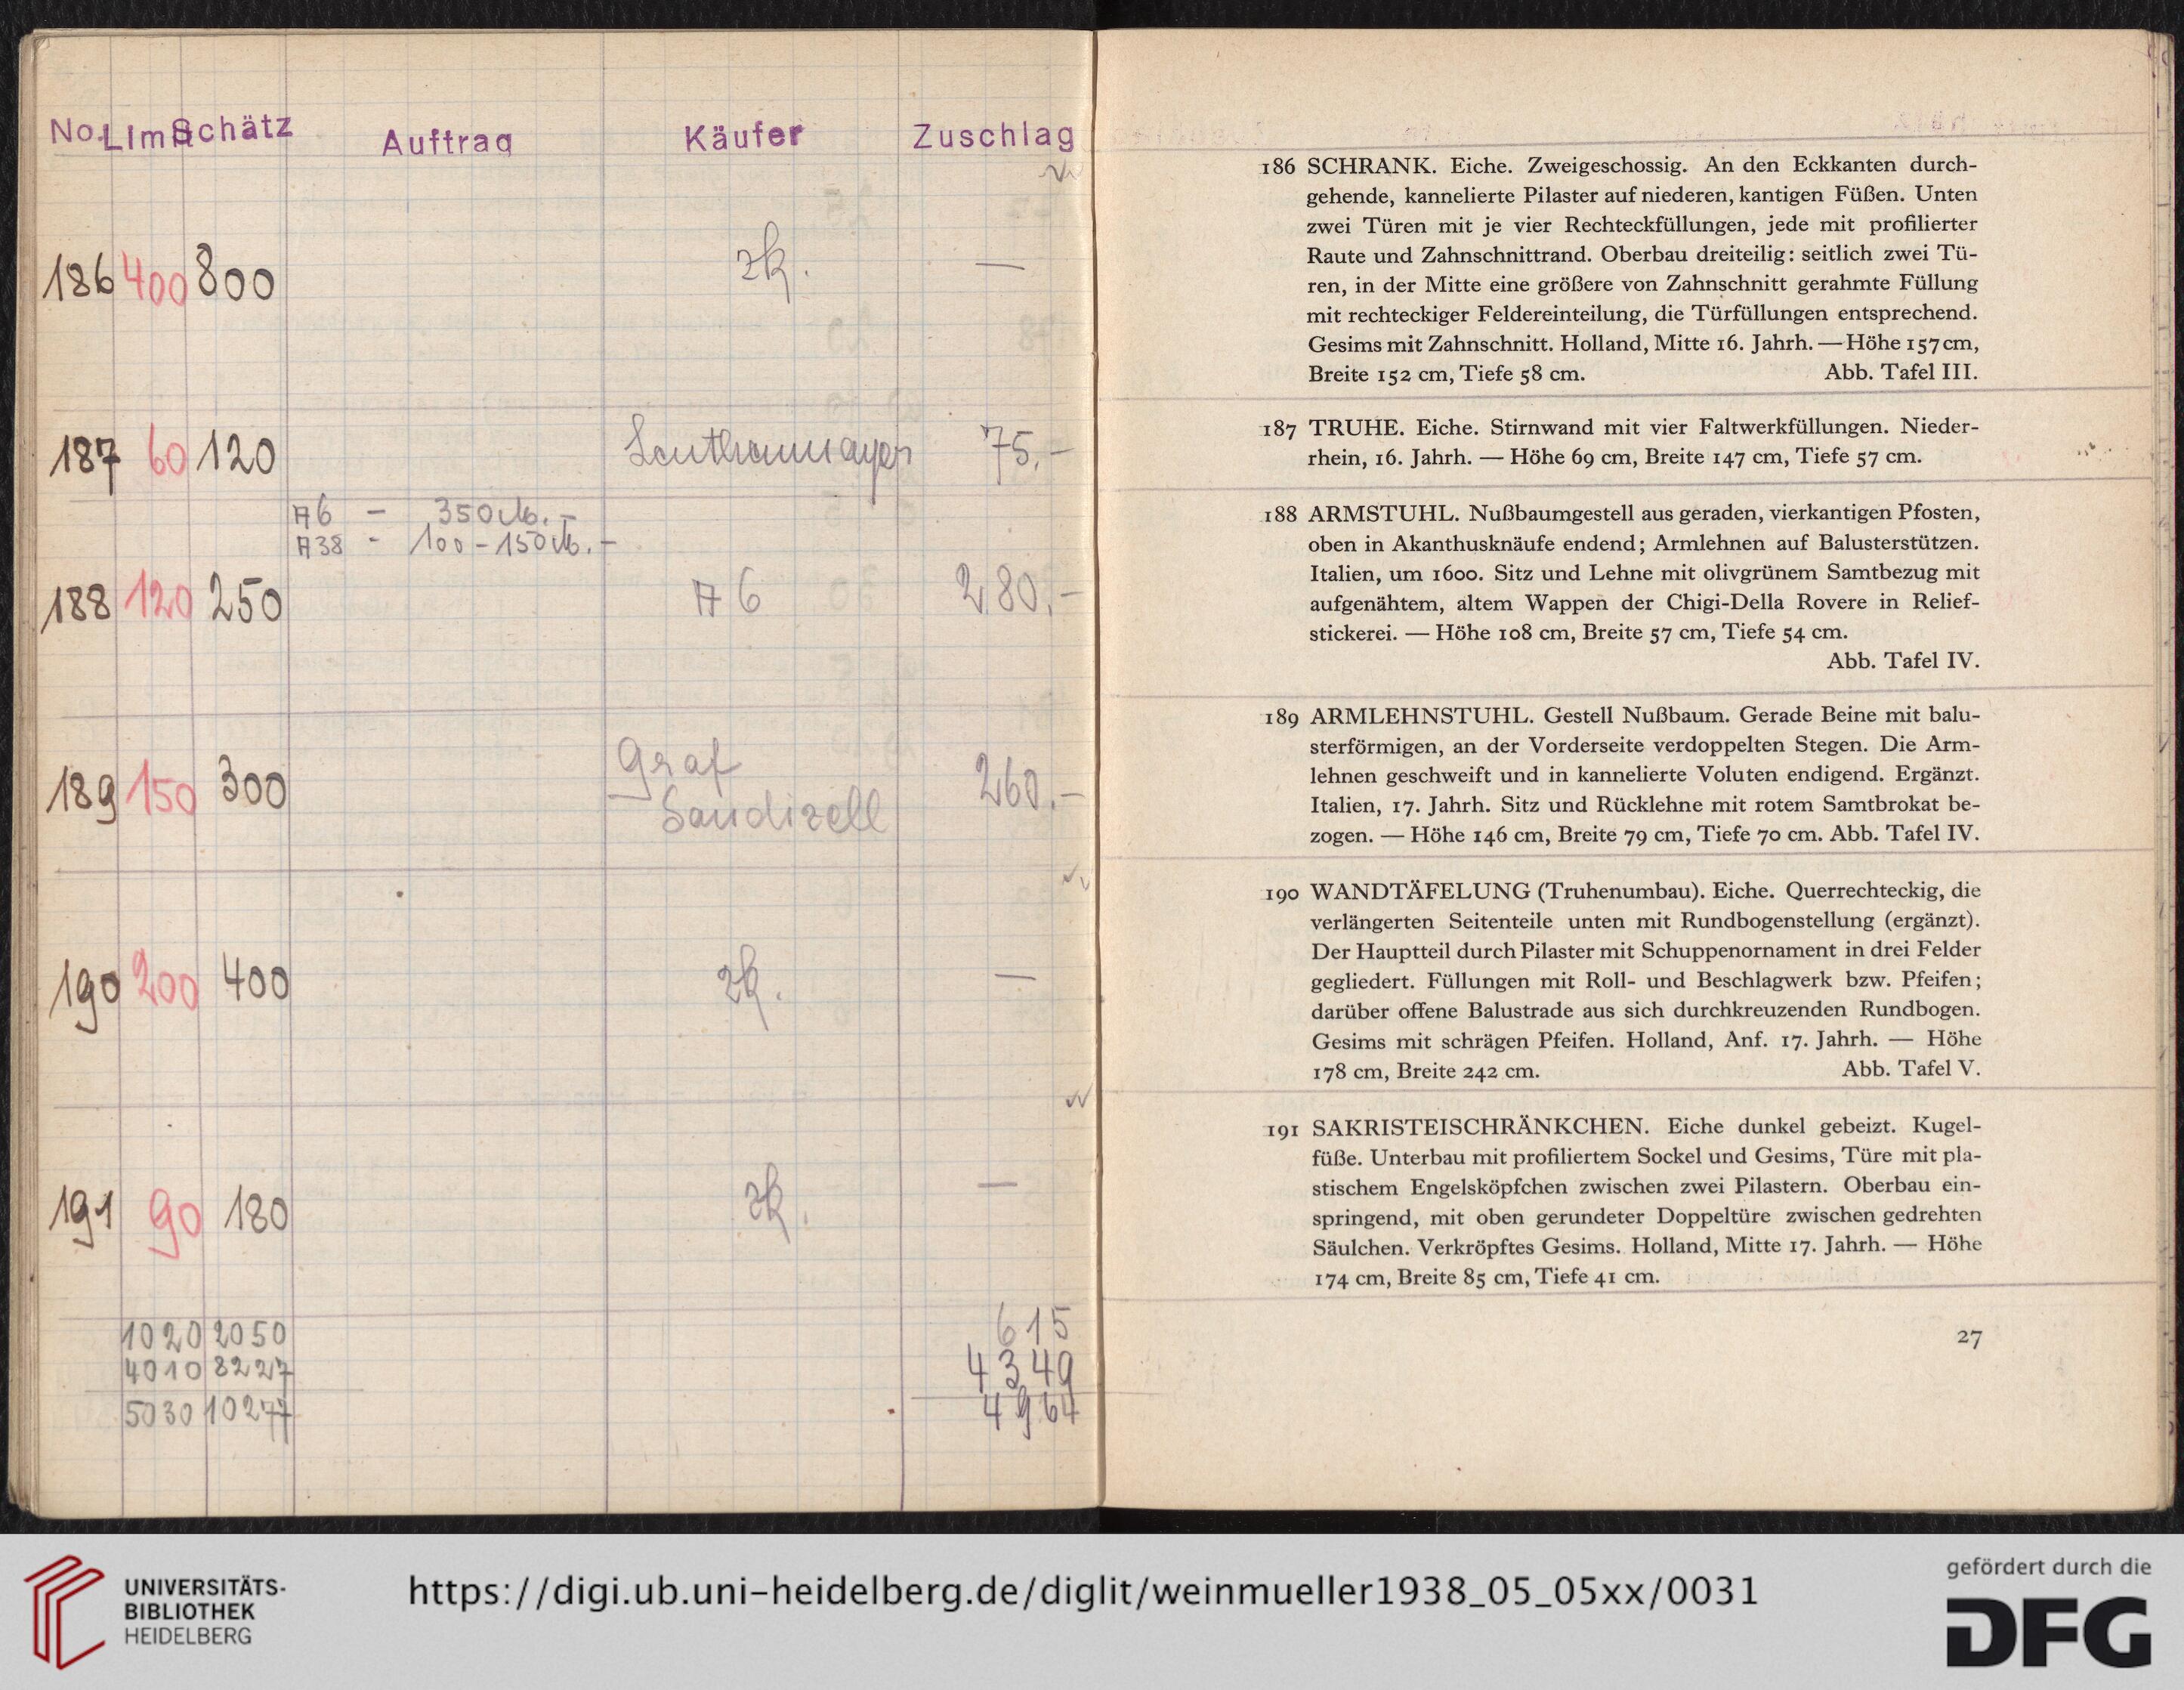 No. Limit Schätz Auftrag Käufer Zuschlag
186 400 800 zk. —
187 60 120 75.-
A6 - 350 M.-
A38 - 100-150 M.-
188 120 250 A6 280.-
189 150 300 Graf
Sandizell 260.-
190 200 400 zk. —
191 90 180 zk. —
1020 2050 615
4010 8227 4349
5030 10277 4964
186 SCHRANK. Eiche. Zweigeschossig. An den Eckkanten durch-
gehende, kannelierte Pilaster auf niederen, kantigen Füßen. Unten
zwei Türen mit je vier Rechteckfüllungen, jede mit profilierter
Raute und Zahnschnittrand. Oberbau dreiteilig: seitlich zwei Tü-
ren, in der Mitte eine größere von Zahnschnitt gerahmte Füllung
mit rechteckiger Feldereinteilung, die Türfüllungen entsprechend.
Gesims mit Zahnschnitt. Holland, Mitte 16. Jahrh. — Höhe 157 cm,
Breite 152 cm, Tiefe 58 cm. Abb. Tafel III.
187 TRUHE. Eiche. Stirnwand mit vier Faltwerkfüllungen. Nieder-
rhein, 16. Jahrh. — Höhe 69 cm, Breite 147 cm, Tiefe 57 cm.
188 ARMSTUHL. Nußbaumgestell aus geraden, vierkantigen Pfosten,
oben in Akanthusknäufe endend; Armlehnen auf Balusterstützen.
Italien, um 1600. Sitz und Lehne mit olivgrünem Samtbezug mit
aufgenähtem, altem Wappen der Chigi-Della Rovere in Relief-
stickerei. — Höhe 108 cm, Breite 57 cm, Tiefe 54 cm.
Abb. Tafel IV.
189 ARMLEHNSTUHL. Gestell Nußbaum. Gerade Beine mit balu-
sterförmigen, an der Vorderseite verdoppelten Stegen. Die Arm-
lehnen geschweift und in kannelierte Voluten endigend. Ergänzt.
Italien, 17. Jahrh. Sitz und Rücklehne mit rotem Samtbrokat be-
zogen. — Höhe 146 cm, Breite 79 cm, Tiefe 70 cm. Abb. Tafel IV.
190 WANDTÄFELUNG (Truhenumbau). Eiche. Querrechteckig, die
verlängerten Seitenteile unten mit Rundbogenstellung (ergänzt).
Der Hauptteil durch Pilaster mit Schuppenornament in drei Felder
gegliedert. Füllungen mit Roll- und Beschlagwerk bzw. Pfeifen;
darüber offene Balustrade aus sich durchkreuzenden Rundbogen.
Gesims mit schrägen Pfeifen. Holland, Anf. 17. Jahrh. — Höhe
178 cm, Breite 242 cm. Abb. Tafel V.
191 SAKRISTEISCHRÄNKCHEN. Eiche dunkel gebeizt. Kugel-
füße. Unterbau mit profiliertem Sockel und Gesims, Türe mit pla-
stischem Engelsköpfchen zwischen zwei Pilastern. Oberbau ein-
springend, mit oben gerundeter Doppeltüre zwischen gedrehten
Säulchen. Verkröpftes Gesims. Holland, Mitte 17. Jahrh. — Höhe
174 cm, Breite 85 cm, Tiefe 41 cm.
27
UNIVERSITÄTS-
BIBLIOTHEK
HEIDELBERG
https://digi.ub.uni-heidelberg.de/diglit/weinmueller1938_05_05xx/0031
gefördert durch die
DFG